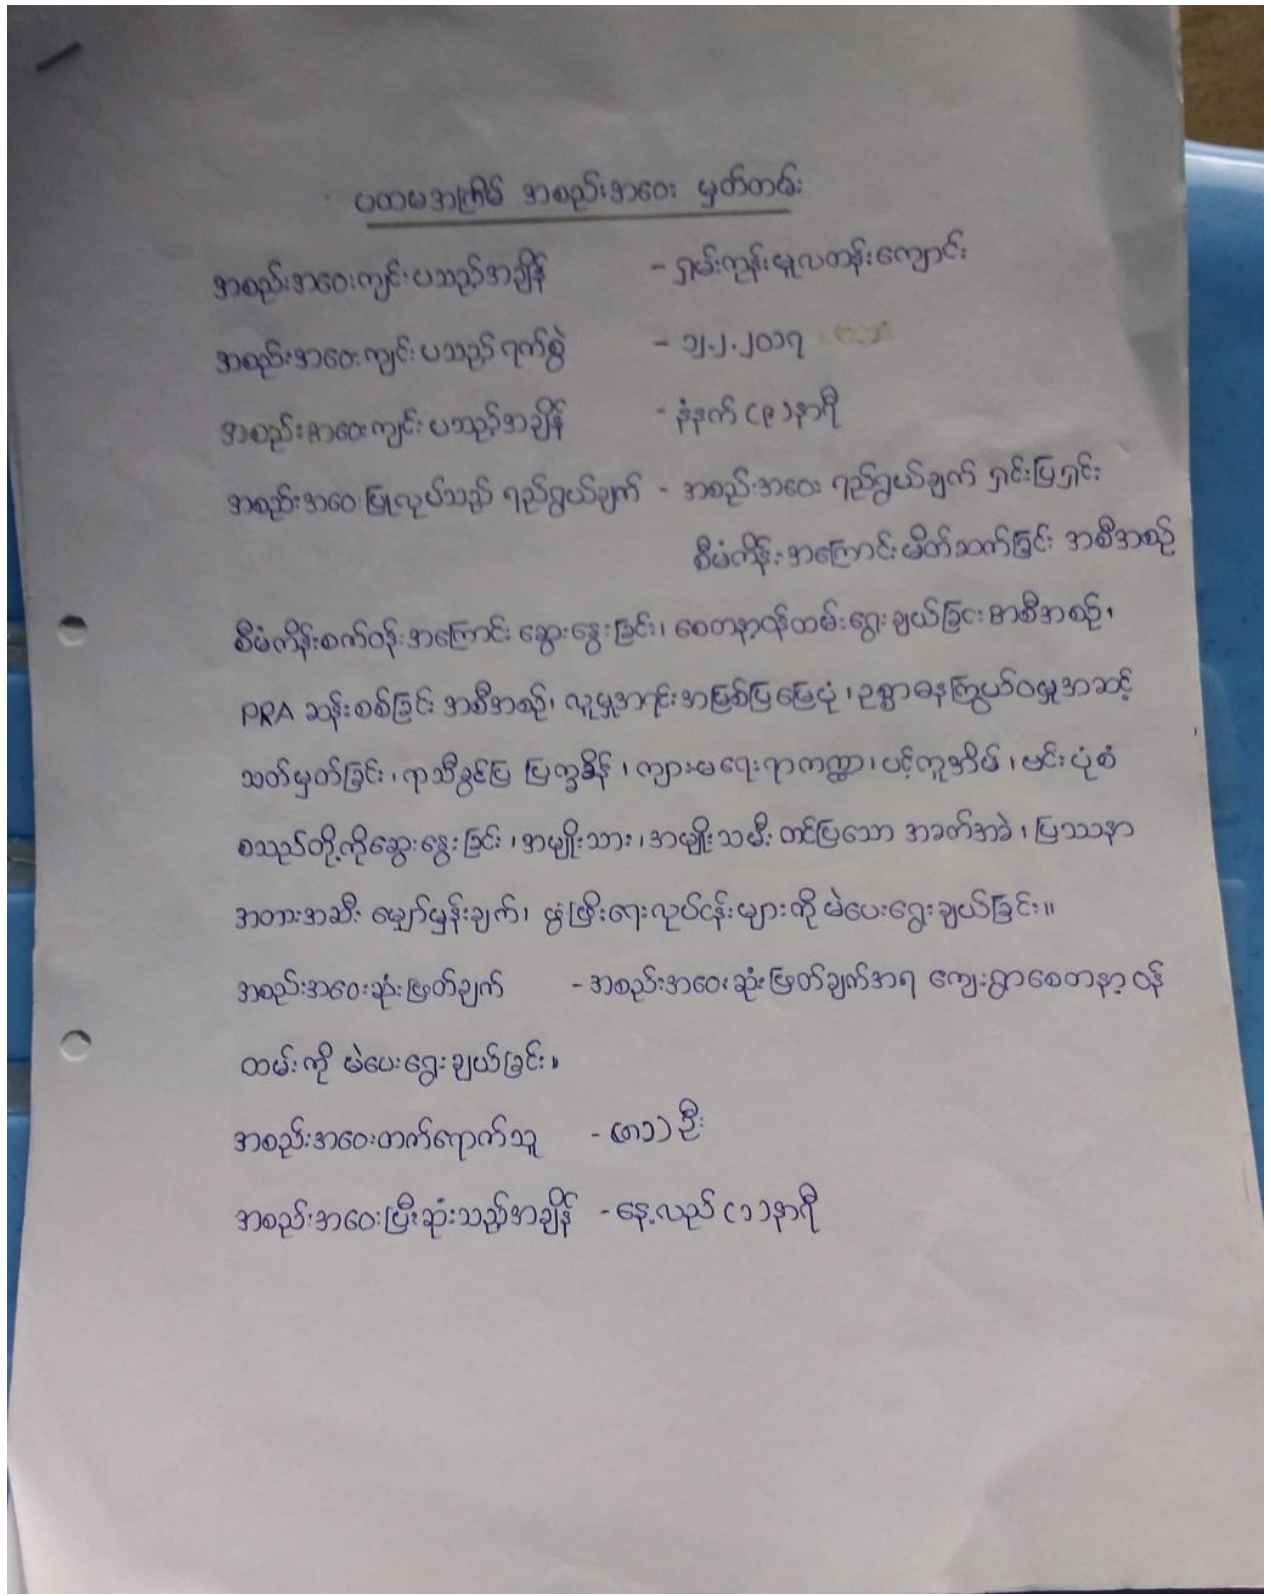 ပထမအကြိမ် အစည်းအဝေး မှတ်တမ်း
အစည်းအဝေးကျင်းပသည့်အချိန် - ရှမ်းကုန်းမူလတန်းကျောင်း
အစည်းအဝေးကျင်းပသည့်ရက်စွဲ - ၁၂.၂.၂၀၁၇
အစည်းအဝေးကျင်းပသည့်အချိန် - နံနက် (၉)နာရီ
အစည်းအဝေးပြုလုပ်သည့် ရည်ရွယ်ချက် - အစည်းအဝေး ရည်ရွယ်ချက် ရှင်းပြရှင်း
စီမံကိန်းအကြောင်းမိတ်ဆက်ခြင်း အစီအစဉ်
စီမံကိန်းစက်ဝန်းအကြောင်း ဆွေးနွေးခြင်း၊ စေတနာ့ဝန်ထမ်းရွေးချယ်ခြင်းအစီအစဉ်၊
PRA ဆန်းစစ်ခြင်း အစီအစဉ်၊ လူမှုအရင်းအမြစ်ပြမြေပုံ၊ ဥစ္စာဓနကြွယ်ဝမှုအဆင့်
သတ်မှတ်ခြင်း၊ ရာသီခွင်ပြ ပြက္ခဒိန်၊ ကျားမရေးရာကဏ္ဍ၊ ပင့်ကူအိမ်၊ ဗင်းပုံစံ
စသည်တို့ကိုဆွေးနွေးခြင်း၊ အမျိုးသား၊ အမျိုးသမီး တင်ပြသော အခက်အခဲ၊ ပြဿနာ
အတားအဆီး မျှော်မှန်းချက်၊ ဖွံ့ဖြိုးရေးလုပ်ငန်းများကို မဲပေးရွေးချယ်ခြင်း။
အစည်းအဝေးဆုံးဖြတ်ချက် - အစည်းအဝေးဆုံးဖြတ်ချက်အရ ကျေးရွာစေတနာ့ဝန်
ထမ်းကို မဲပေးရွေးချယ်ခြင်း။
အစည်းအဝေးတက်ရောက်သူ - (၈၁) ဦး
အစည်းအဝေးပြီးဆုံးသည့်အချိန် - နေ့လည် (၁)နာရီ